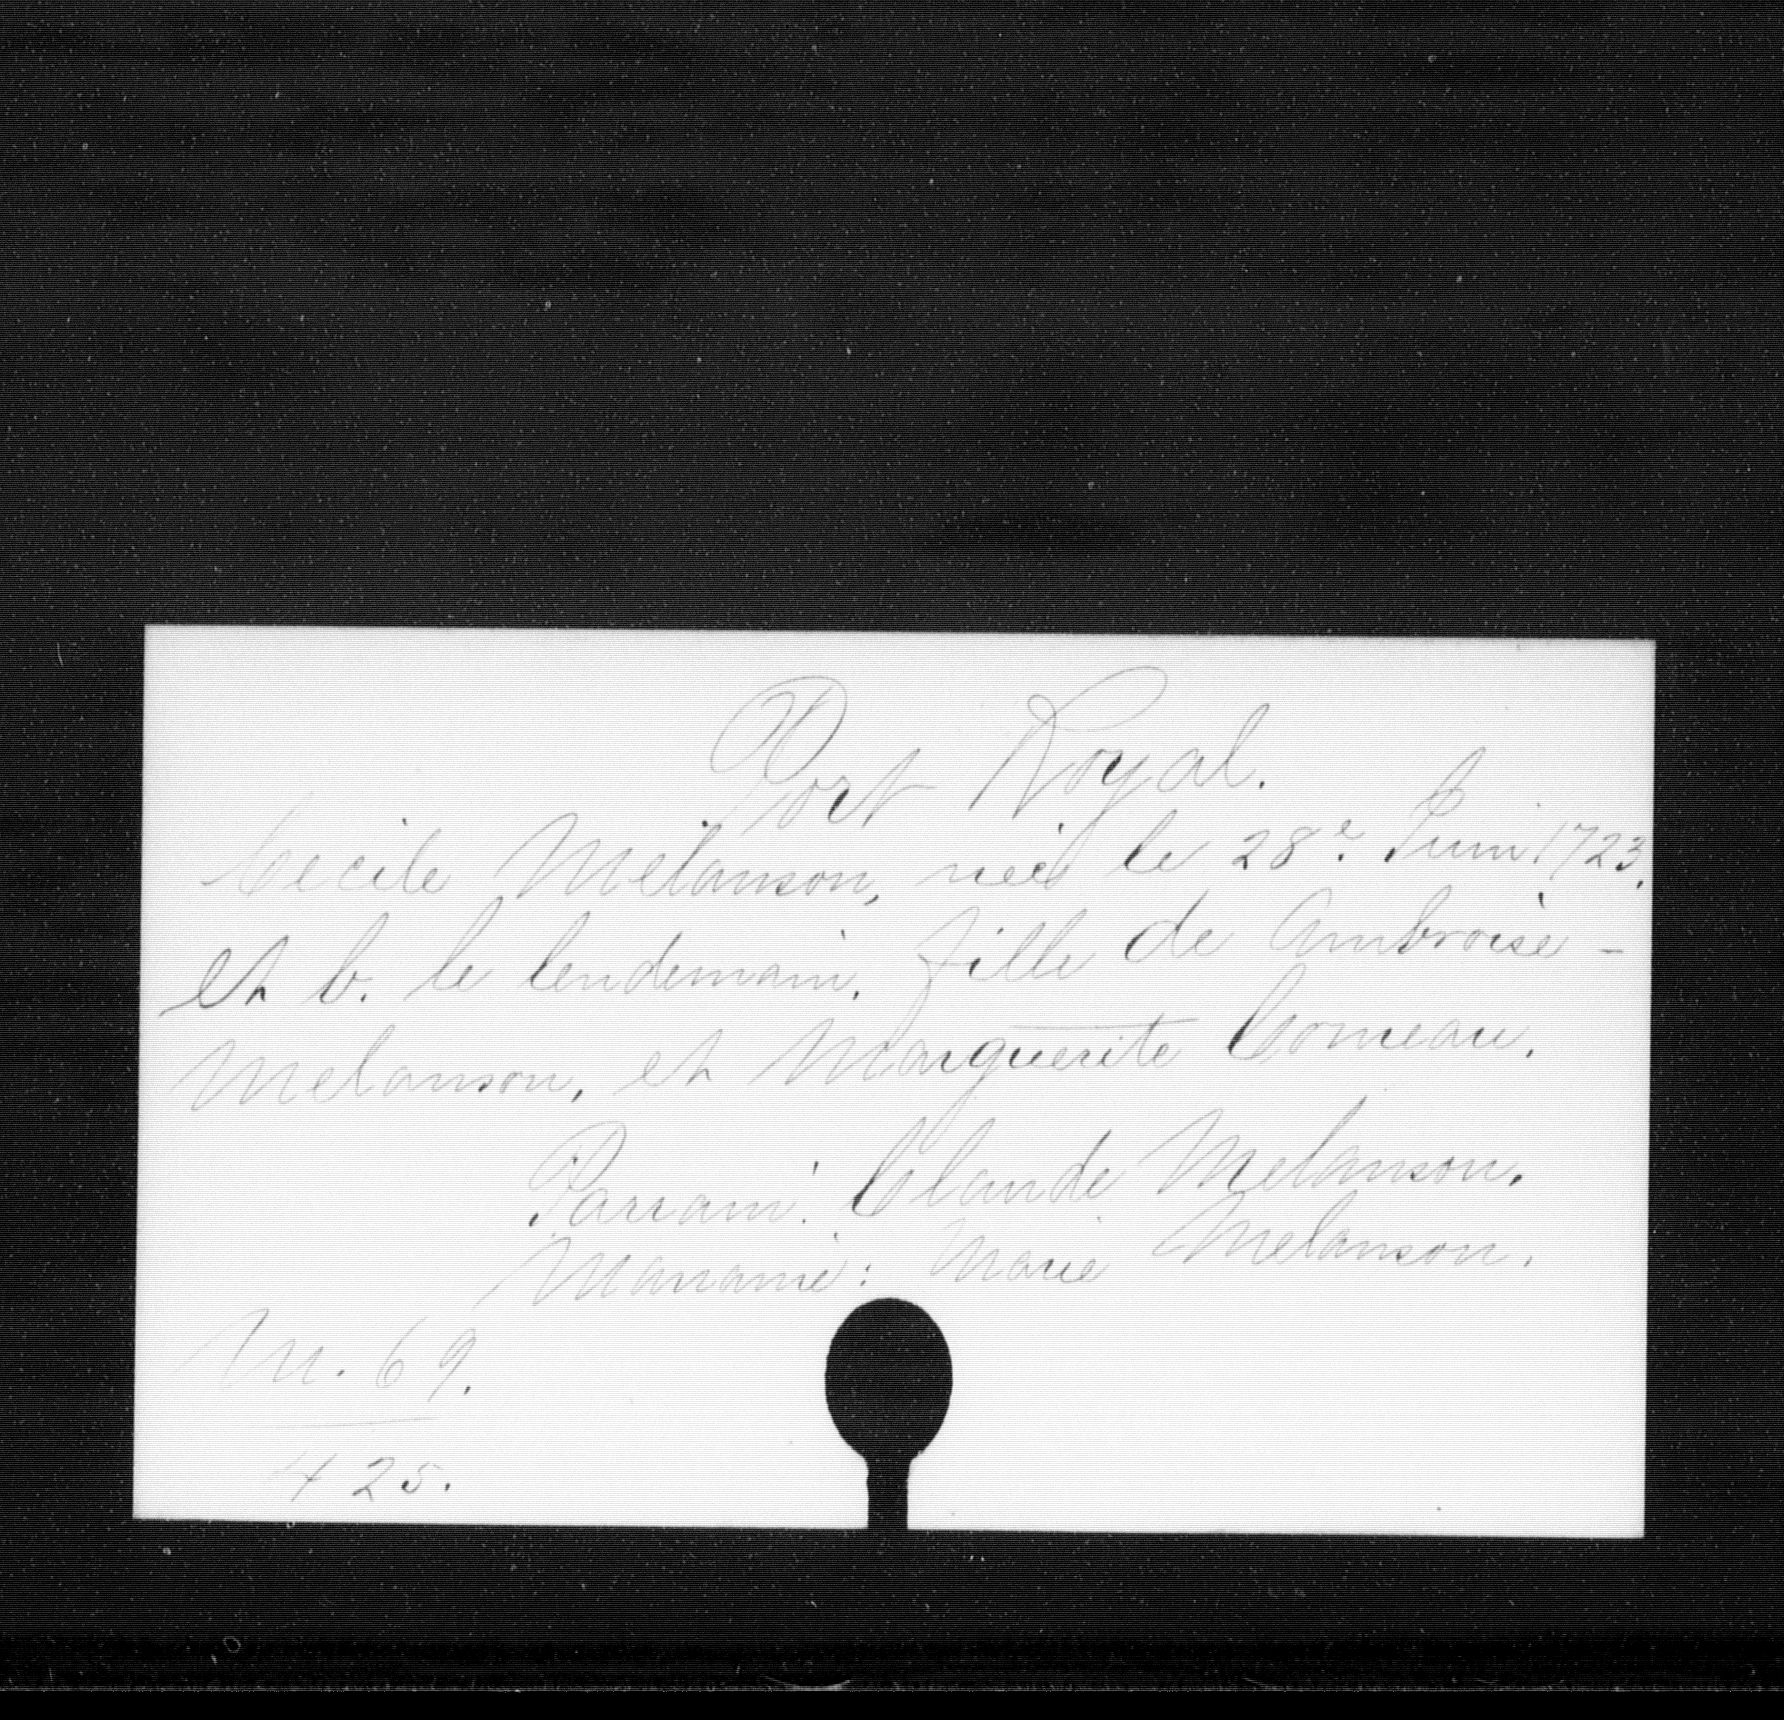 Port Royal.
Cecile Melanson, née le 28e. Juin 1723,
et b. le lendemain, fille de Ambroise -
Melanson, et Marguerite Comeau.
Parrain: Claude Melanson.
Marraine: Marie Melanson.
M. 69.
425.